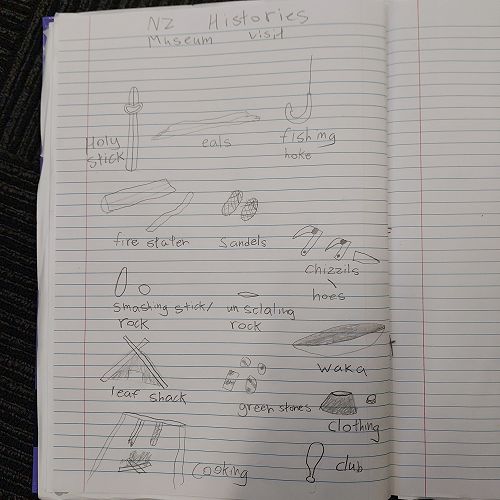 NZ Histories
Museum visit
Holy
stick
eals
fishing
hoke
fire stater
Sandels
Chizzils
hoes
Smashing stick/
rock
un sclating
rock
waka
leaf shack
green stones
Clothing
Cooking
club